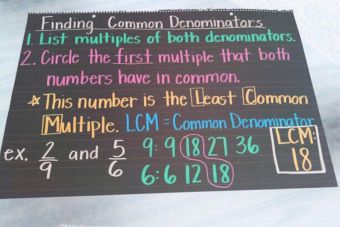 Finding Common Denominators
1. List multiples of both denominators.
2. Circle the first multiple that both
numbers have in common.
☆ This number is the Least Common
Multiple. LCM = Common Denominator
ex. 2/9 and 5/6
9: 9 18 27 36
6: 6 12 18
LCM:
18